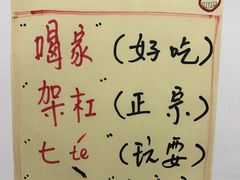 喝家”（好吃）
“架杠”（正宗）
“七té”（玩耍）